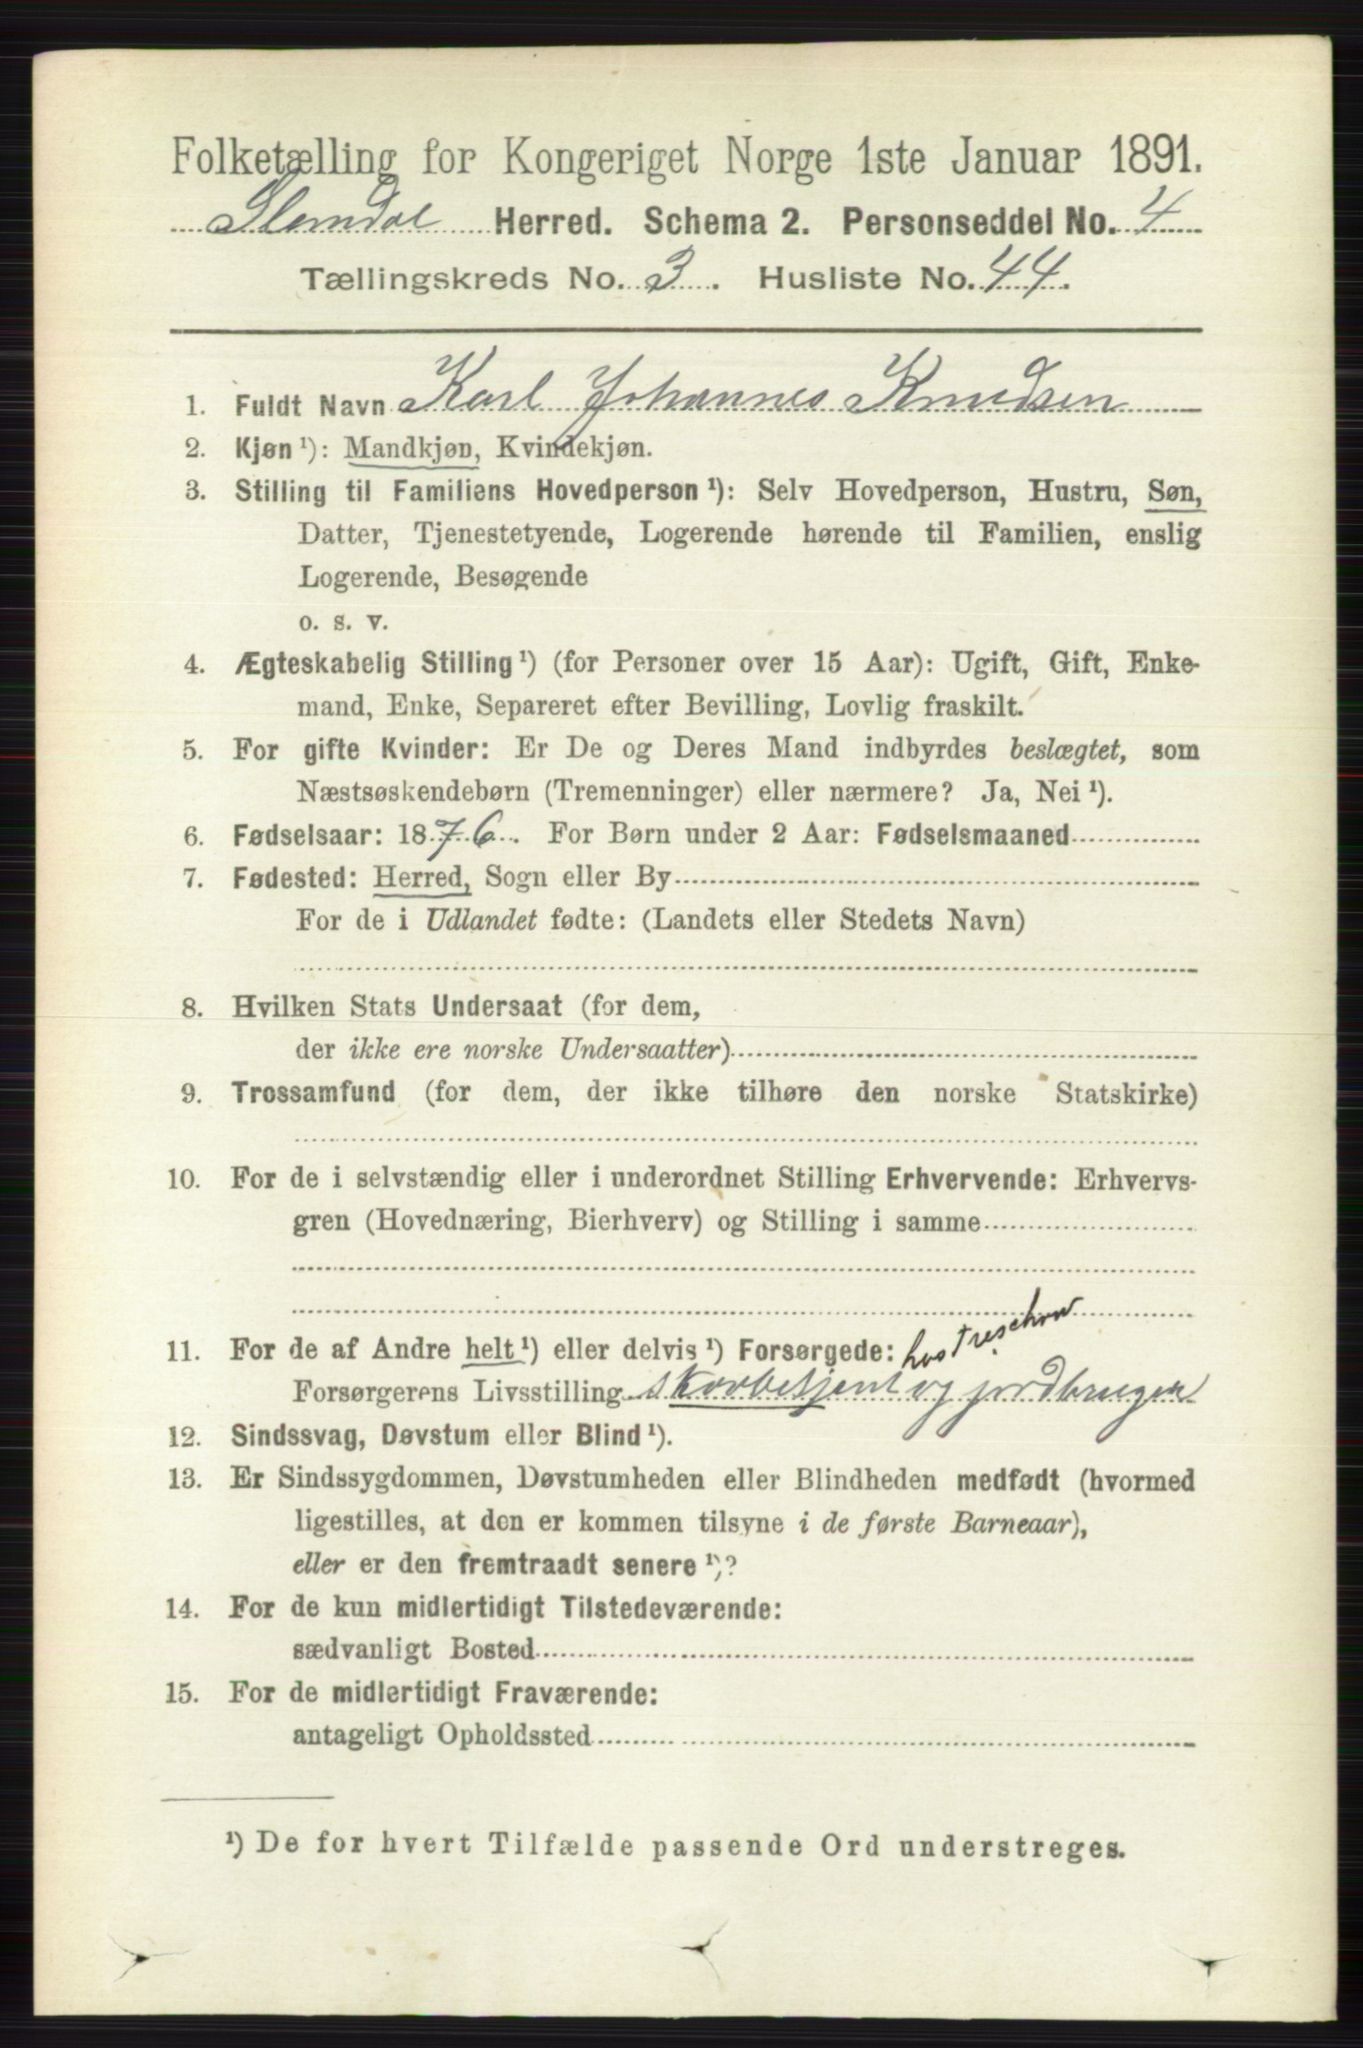 Folketælling for Kongeriget Norge 1ste Januar 1891.
Slemdal Herred. Schema 2. Personseddel No. 4
Tællingskreds No. 3. Husliste No. 44.
1. Fuldt Navn Karl Johannes Knudsen
2. Kjøn¹): Mandkjøn, Kvindekjøn.
3. Stilling til Familiens Hovedperson¹): Selv Hovedperson, Hustru, Søn,
Datter, Tjenestetyende, Logerende hørende til Familien, enslig
Logerende, Besøgende
o. s. v.
4. Ægteskabelig Stilling¹) (for Personer over 15 Aar): Ugift, Gift, Enke-
mand, Enke, Separeret efter Bevilling, Lovlig fraskilt.
5. For gifte Kvinder: Er De og Deres Mand indbyrdes beslægtet, som
Næstsøskendebørn (Tremenninger) eller nærmere? Ja, Nei¹).
6. Fødselsaar: 1876. For Børn under 2 Aar: Fødselsmaaned
7. Fødested: Herred, Sogn eller By
For de i Udlandet fødte: (Landets eller Stedets Navn)
8. Hvilken Stats Undersaat (for dem,
der ikke ere norske Undersaatter)
9. Trossamfund (for dem, der ikke tilhøre den norske Statskirke)
10. For de i selvstændig eller i underordnet Stilling Erhvervende: Erhvervs-
gren (Hovednæring, Bierhverv) og Stilling i samme
11. For de af Andre helt¹) eller delvis¹) Forsørgede: hos Treschow
Forsørgerens Livsstilling skovbetjent og jordbruger
12. Sindssvag, Døvstum eller Blind¹).
13. Er Sindssygdommen, Døvstumheden eller Blindheden medfødt (hvormed
ligestilles, at den er kommen tilsyne i de første Barneaar),
eller er den fremtraadt senere¹)?
14. For de kun midlertidigt Tilstedeværende:
sædvanligt Bosted
15. For de midlertidigt Fraværende:
antageligt Opholdssted
¹) De for hvert Tilfælde passende Ord understreges.